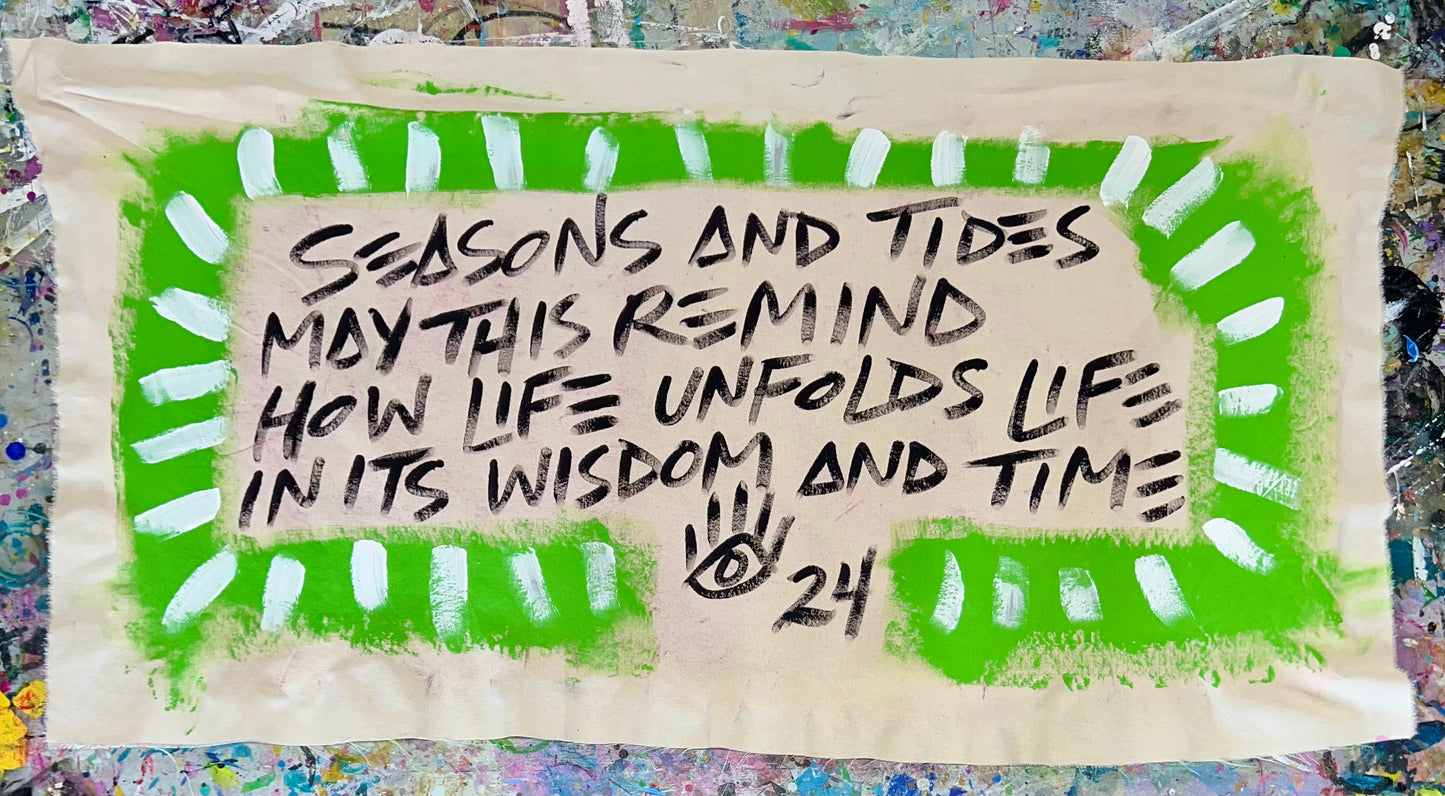 SEASONS AND TIDES
MAY THIS REMIND
HOW LIFE UNFOLDS LIFE
IN ITS WISDOM AND TIME
24